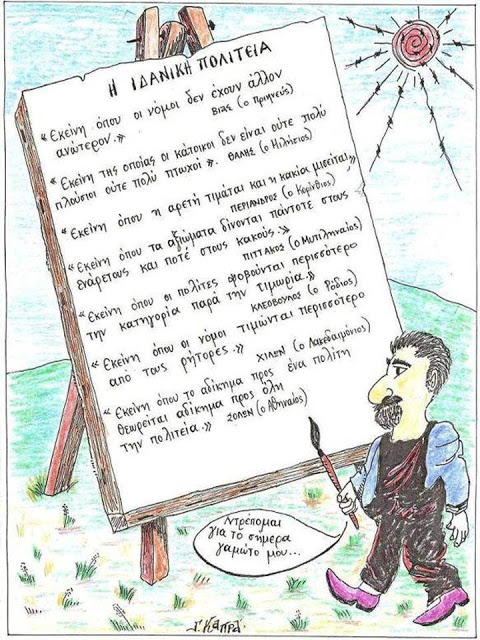 Η ΙΔΑΝΙΚΗ ΠΟΛΙΤΕΙΑ
«Εκείνη όπου οι νόμοι δεν έχουν άλλον
ανώτερον.» ΒΙΑΣ (ο Πριηνεύς)
«Εκείνη της οποίας οι κάτοικοι δεν είναι ούτε πολύ
πλούσιοι ούτε πολύ πτωχοί». ΘΑΛΗΣ (ο Μιλήσιος)
«Εκείνη όπου η αρετή τιμάται και η κακία μισείται»
ΠΕΡΙΑΝΔΡΟΣ (ο Κορίνθιος)
«Εκείνη όπου τα αξιώματα δίνονται πάντοτε στους
ενάρετους και ποτέ στους κακούς.»
ΠΙΤΤΑΚΟΣ (ο Μυτιληναίος)
«Εκείνη όπου οι πολίτες φοβούνται περισσότερο
την κατηγορία παρά την τιμωρία.»
ΚΛΕΟΒΟΥΛΟΣ (ο Ρόδιος)
«Εκείνη όπου οι νόμοι τιμώνται περισσότερο
από τους ρήτορες.» ΧΙΛΩΝ (ο Λακεδαιμόνιος)
«Εκείνη όπου το αδίκημα προς ένα πολίτη
θεωρείται αδίκημα προς όλη
την πολιτεία.» ΣΟΛΩΝ (ο Αθηναίος)
Ντρέπομαι
για το σήμερα
γαμώτο μου...
Γ. ΚΑΠΡΑ